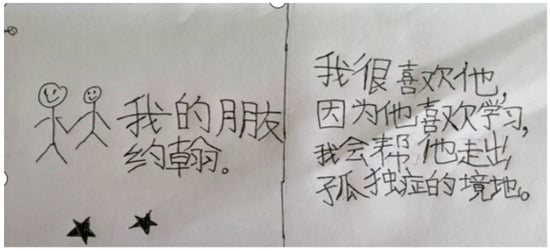 我的朋友
约翰。
我很喜欢他,
因为他喜欢学习,
我会帮他走出
孤独症的境地。